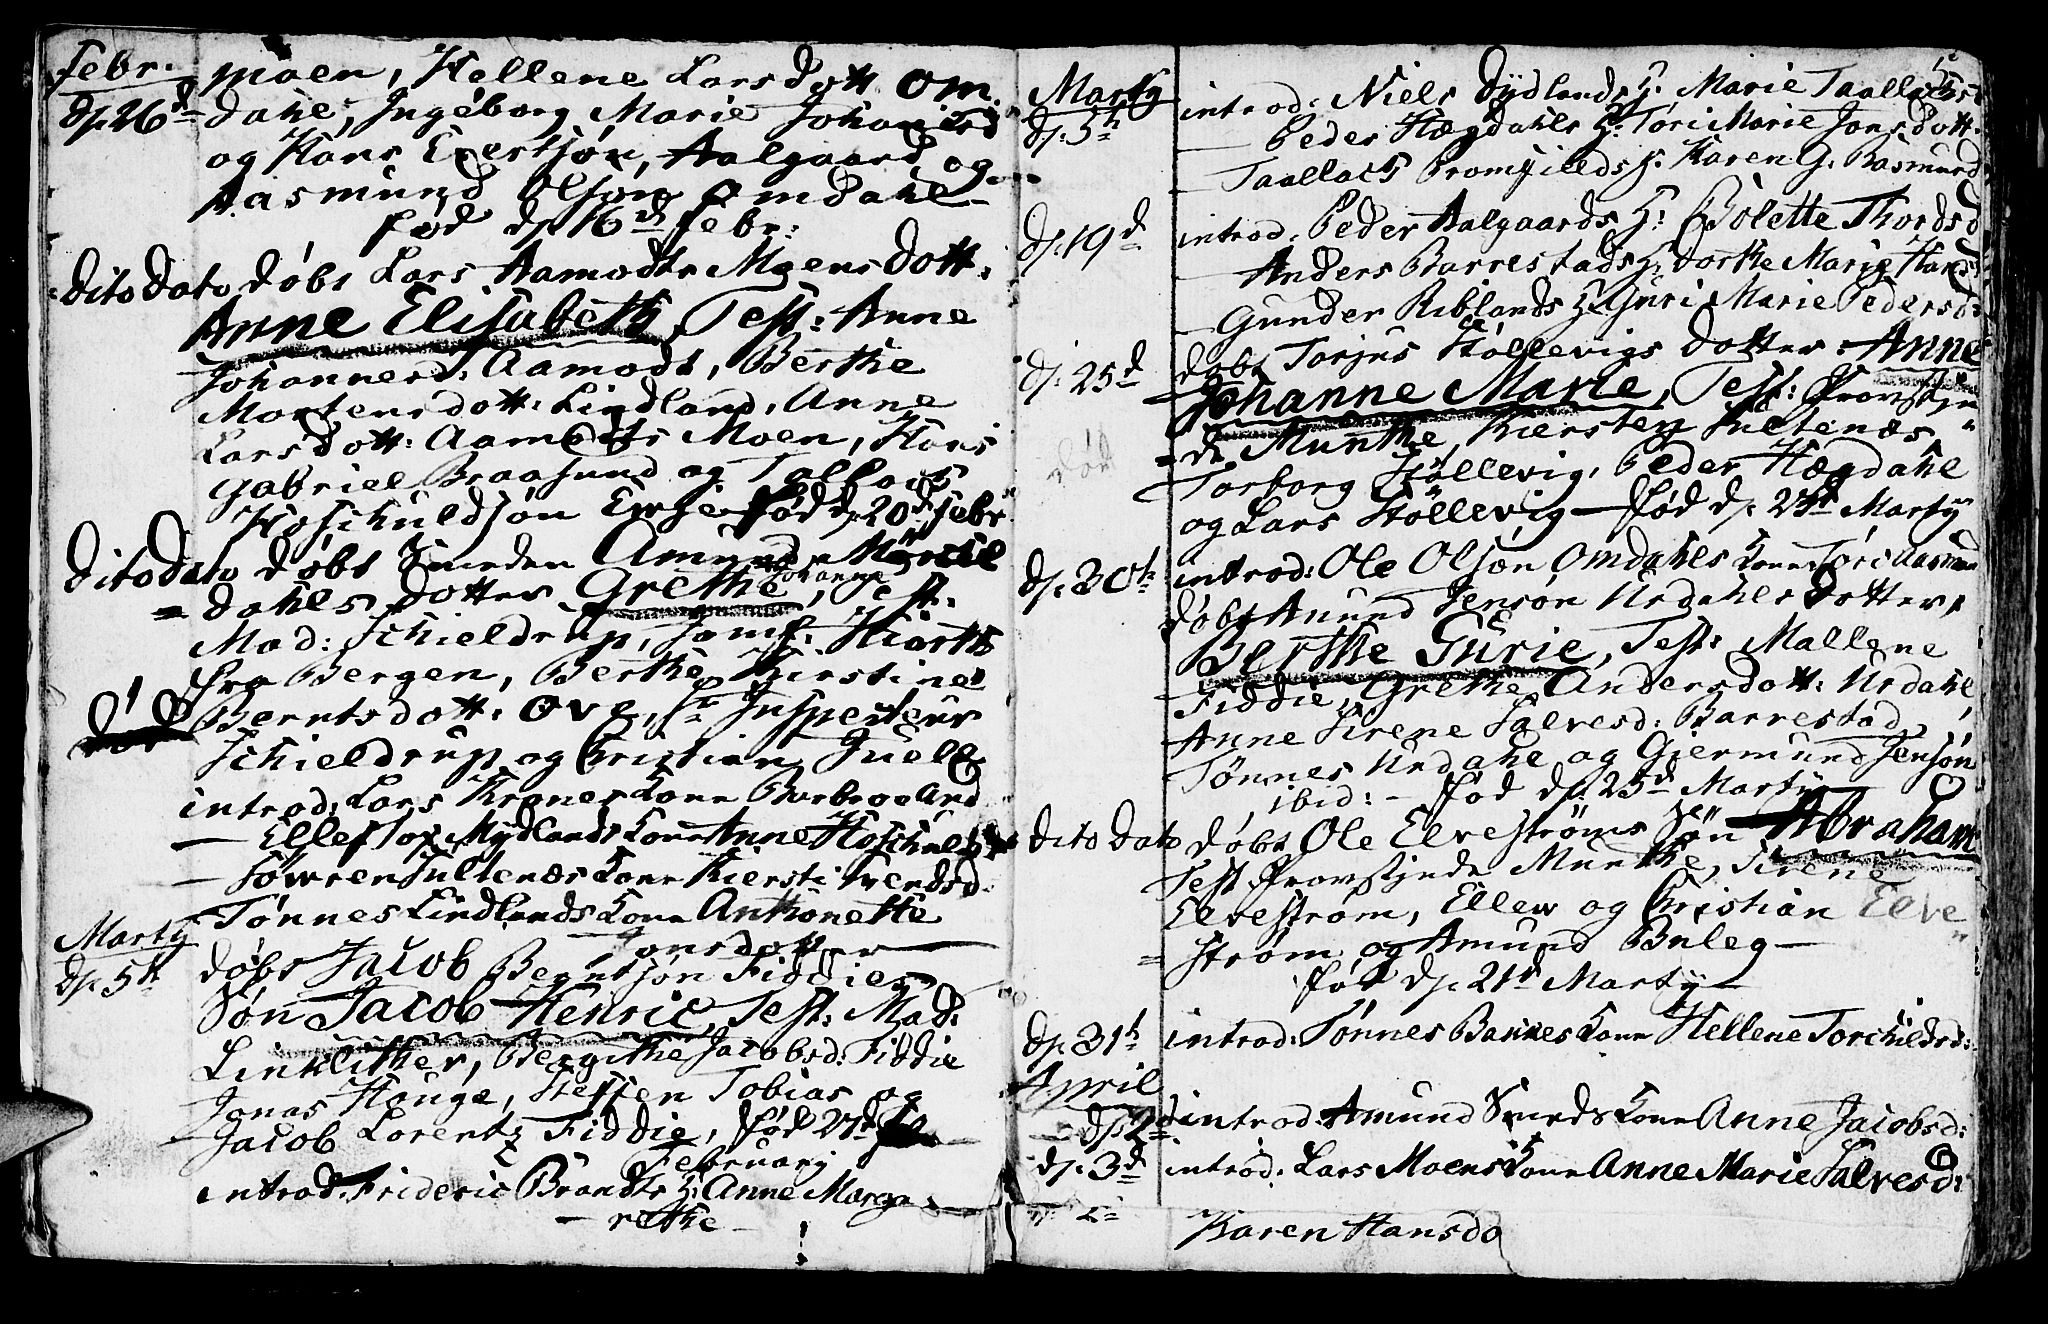 Febr. moen, Hellene Larsdott Om-
dp. 26d dahl, Ingeborg Marie Johanesd
og Hans Evertsøn, Aalgaard og
Aasmund Olsøn Omdahl
fød dp 16d Febr:
dito dato døbt Lars Aamodts Moens Dott:
Anne Elisabeth, Test: Anne
Johannesd: Aamodt, Berthe
Mortensdott: Lindland, Anne
Larsdott: Aamodts Moen, Hans
Gabriel Braasund og Tallach
Hoschuldsøn Ersie fød dp 20d Febr
dito Dato døbt Smeden Amunds
dahls dotter Grethe Johanne, Test:
Mad: Schieldrup, Jomf: Hiorth
fra Bergen, Berthe Kirstine
død Berntsdott: Ove, Hr Inspecteur
Schieldrup og Christian Juell
introd: Lars Kranes Kone Barbroe And
— Ellef Mydlands Kone Anne Hoschulds
— Søwren Sultenæs Kone Kiersti Svendsd.
— Tønnes Lindlands Kone Anthonette
Jonsdotter
Marty
dp. 5t døbt Jacob Berntsøn Fiddies
Søn Jacob Henric Test: Mad:
Linklither, Bergithe Jacobsd: Fiddie
Jonas Houge, Steffen Tobias og
Jacob Lorentz Fiddie, fød 27d
February
introd: Frideric Brandts H: Anne Marga
— rethe —
Marty
dp. 5t introd: Niels Dydlands H: Marie Taallachs
— Peder Hægdahls H: Tori Marie Jonsdott.
— Taallach Bromfields H: Karen G. Rasmusd
dp. 19d introd: Peder Aalgaards H: Bolette Thordsd
— Anders Barrestads H: Dorthe Marie Hansd
— Gunder Riblands H: Guri Marie Pedersd:
dp. 25d døbt Torjus Støllevigs dotter Anne
Johanne Marie, Test: Provstjn
de Munthe, Kiersten Sultenæs
død Torborg Støllevig, Peder Hægdahl
og Lars Støllevig — fød dp. 23d Marty
dp. 30t introd: Ole Olsøn Omdahls Kone Tori Aasmun
døbt Amund Jensøn Urdahls Dotter
Berthe Gurie, Test: Mallene
Fiddie, Grethe Andersdott: Urdahl,
Anne Sirene Salvesd: Barrestad
Tønnes Urdahl og Giermund Jensøn
ibid: — fød dp 25d Marty
dito dato døbt Ole Elvestrøms Søn Abraham
Test Provstjnde Munthe, Sirene
Elvestrøm, Ellew og Christian Elve
strøm og Amund Buleg —
fød dp. 21d Marty —
dp. 31t introd: Tønnes Bannes Kone Hellene Torchildsd:
April
dp 2d introd: Amund Smeds Kone Anne Jacobsd:
dp. 3d introd: Lars Moens Kone Anne Marie Salvesd:
Karen Hansdo